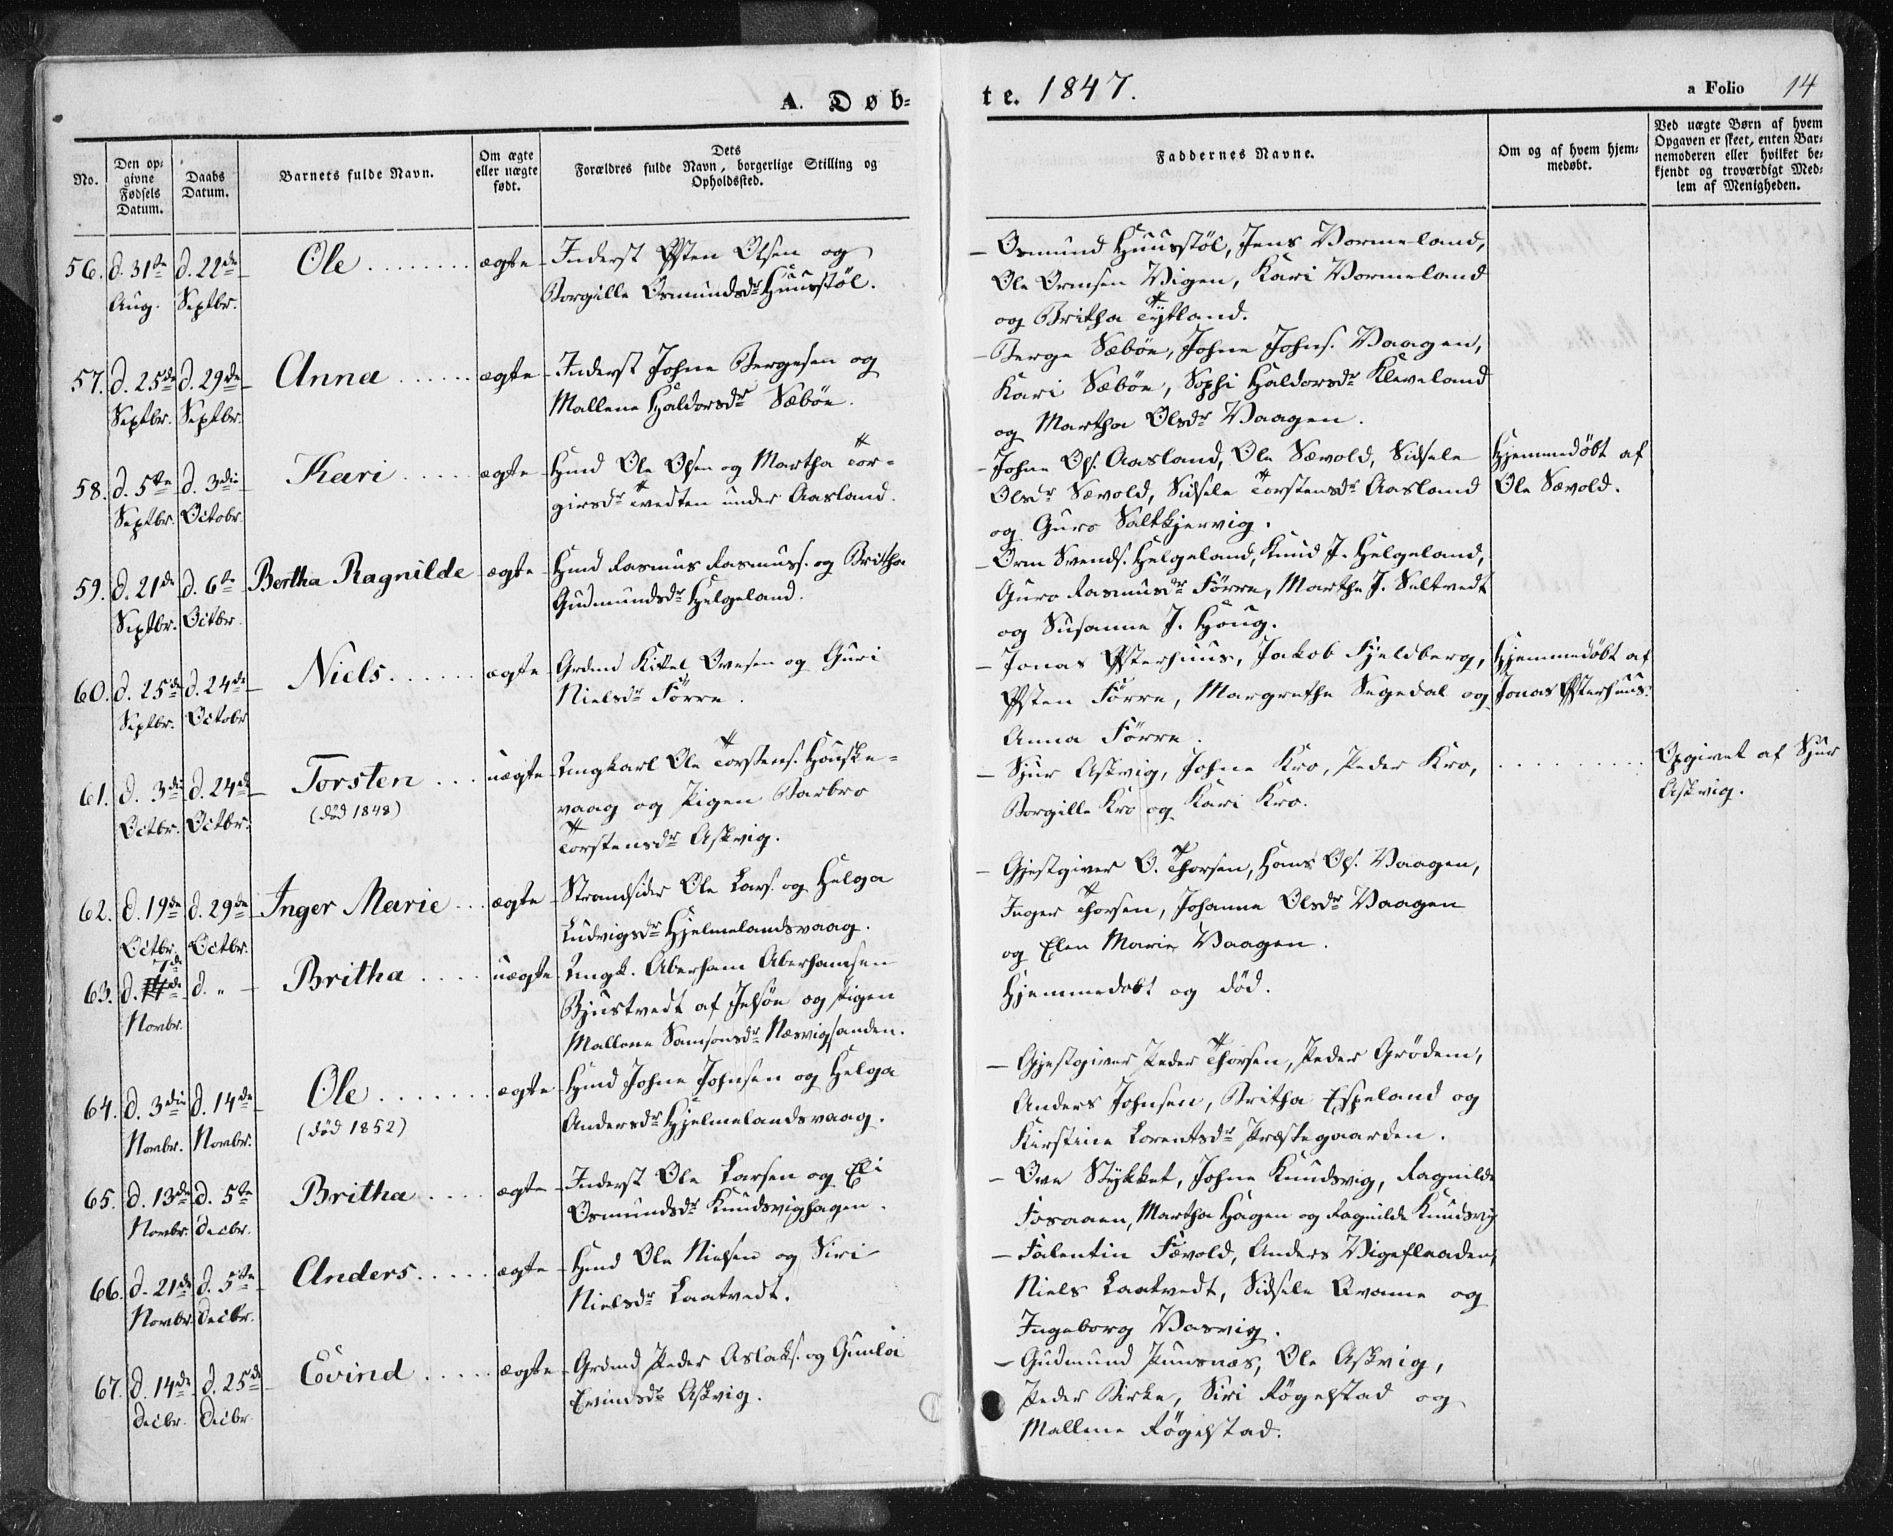 A. Døb-
te. 1847.
a Folio 14
No.
Den op-
givne
Fødsels
Datum.
Daabs
Datum.
Barnets fulde Navn.
Om ægte
eller uægte
født.
Dets
Forældres fulde Navn, borgerlige Stilling og
Opholdssted.
Faddernes Navne.
Om og af hvem hjem-
medøbt.
Ved uægte Børn af hvem
Opgaven er skeet, enten Bar-
nemoderen eller hvilket be-
kjendt og troværdigt Med-
lem af Menigheden.
56. d. 31te Aug. d. 22de Septbr. Ole ........ ægte
Inderst Østen Olsen og
Borgille Osmundsdr Huusstøl.
Osmund Huusstøl, Jens Vormeland,
Ole Ormsen Vigen, Kari Vormeland
og Britha Tytland.
57. d. 25de Septbr. d. 29de Septbr. Anna ...... ægte
Inderst Johne Bergesen og
Mallene Haldorsdr Sæbøe.
Berge Sæbøe, Johne Johns. Vaagen,
Kari Sæbøe, Sophi Haldorsdr Kleveland
og Martha Olsdr Vaagen.
58. d. 5te Septbr. d. 3die Octobr. Kari ..... ægte
Hmd Ole Ols. og Martha Tor-
girsdr Tvedten under Aasland.
Johne Ols. Aasland, Ole Sævold, Sidsele
Olsdr Sævold, Sidsele Torstensdr Aasland
og Guro Saltkjervig.
Hjemmedøbt af
Ole Sævold.
59. d. 21de Septbr. d. 6te Octbr. Bertha Ragnilde ægte
Hmd Rasmus Rasmuss. og Britha
Gudmundsdr Helgeland.
Orm Svends. Helgeland, Knud J. Helgeland,
Guro Rasmusdr Førre, Martha J. Saltvedt
og Susanne J. Houg.
60. d. 25de Septbr. d. 24de Octobr. Niels ...... ægte
Grdmd Kittel Ovesen og Guri
Nielsdr Førre.
Jonas Østerhuus, Jakob Fjeldberg,
Østen Førre, Margrethe Segedal og
Anna Førre.
Hjemmedøbt af
Jonas Østerhuus.
61. d. 3die Octbr. d. 24de Octbr. Torsten ... uægte
(død 1848)
Ungkarl Ole Torstens. Houske-
vaag og Pigen Barbro
Torstensdr Askvig.
Sjur Askvig, Johne Kro, Peder Kro,
Borgille Kro og Kari Kro.
Opgivet af Sjur
Askvig.
62. d. 19de Octbr. d. 29de Octbr. Inger Marie ... ægte
Strandsider Ole Lars. og Helga
Ludvigsdr Hjelmelandsvaag.
Gjestgiver O. Thorsen, Hans Ols. Vaagen,
Inger Thorsen, Johanna Olsdr Vaagen
og Elen Marie Vaagen.
63. d. 7de Novbr. d. „ Britha .... uægte
Ungk. Aberham Aberhamsen
Bjustvedt af Jelsøe og Pigen
Mallene Samsonsdr Næsvigsanden.
Hjemmedøbt og død.
64. d. 3die Novbr. d. 14de Novbr. Ole ....... ægte
(død 1852)
Hmd Johne Johnsen og Helga
Andersdr Hjelmelandsvaag.
Gjestgiver Peder Thorsen, Peder Grødem,
Anders Johnsen, Britha Espeland og
Kirstine Lorentsdr Præstegaarden.
65. d. 13de Novbr. d. 5te Decbr. Britha .... ægte
Inderst Ole Larsen og Eli
Osmundsdr Knudsvighagen.
Ove Stykket, Johne Knudsvig, Ragnilde
Fosaaen, Martha Hagen og Ragnilde Knudsvig
66. d. 21de Novbr. d. 5te Decbr. Anders ..... ægte
Hmd Ole Nielsen og Siri
Nielsdr Laatvedt.
Falentin Sævold, Anders Vigefladen,
Niels Laatvedt, Sidsele Qvamme og
Ingeborg Vasvig.
67. d. 14de Decbr. d. 25de Decbr. Eevind ..... ægte
Grdmd Peder Aslaks. og Gunla
Evindsdr Askvig.
Gudmund Puntsnæs, Ole Askvig,
Peder Birke, Siri Røgelstad og
Mallene Røgelstad.